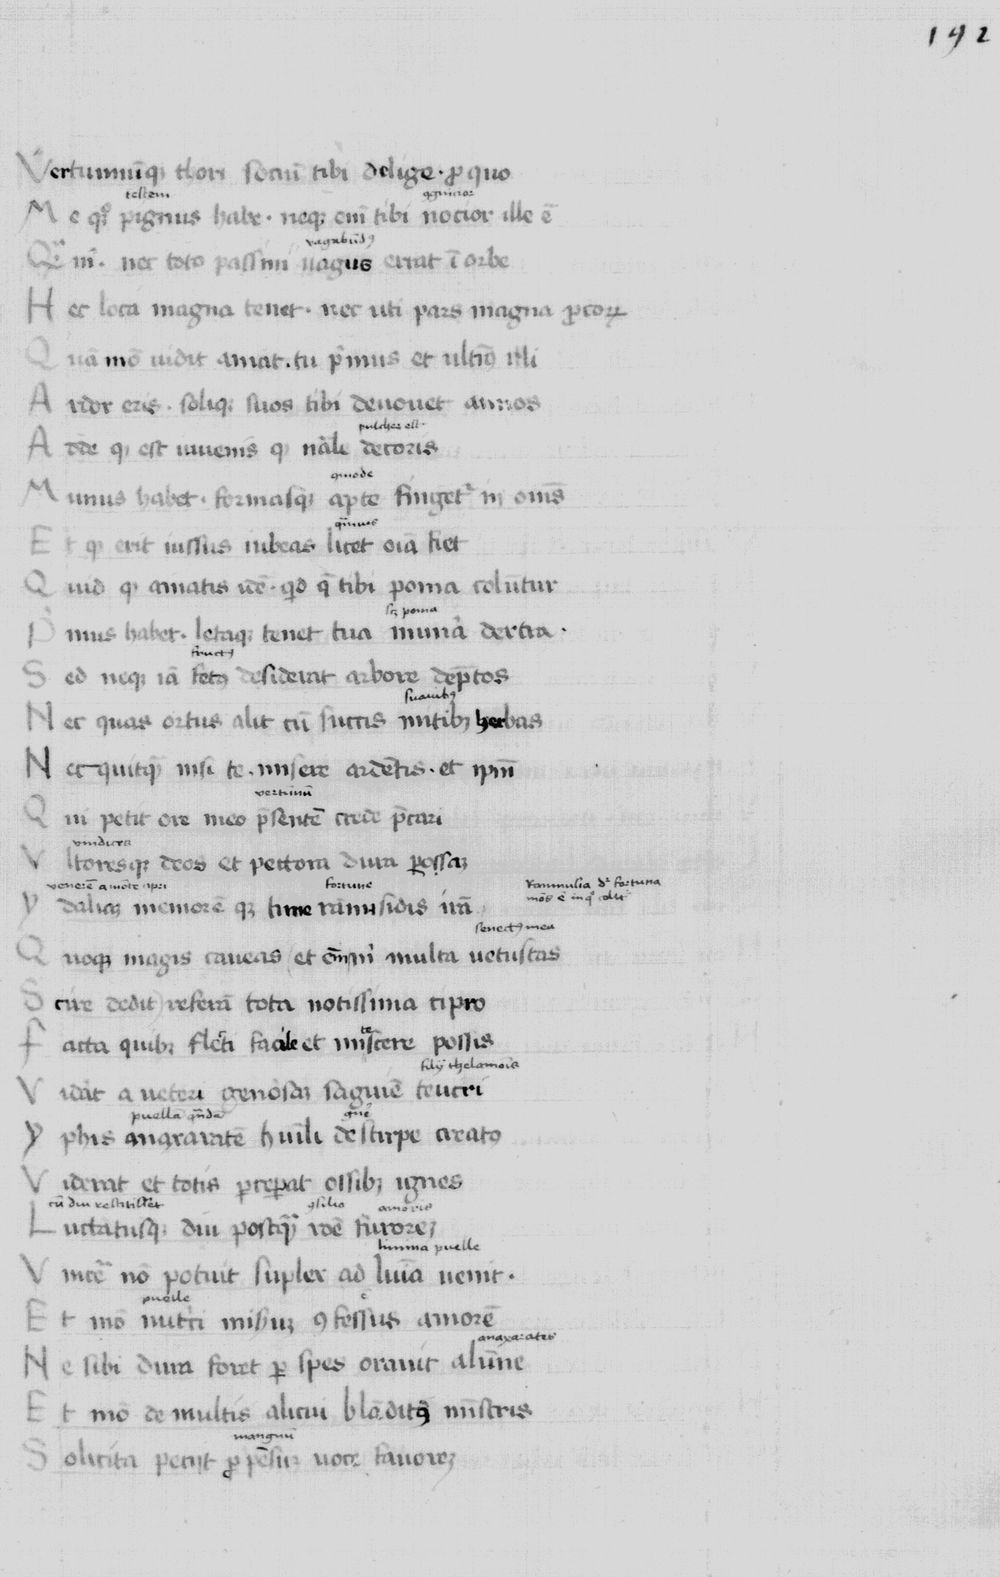 192
Vertumnūqʒ thori sociū tibi delige · ꝓ quo
testem cognitior
Me qͦqʒ pignus habe · neqʒ eniͫ tibi nocior ille ē
vagabūdꝰ
Qͣm · nec toto passim uagus errat ī orbe
Hec loca magna tenet · nec uti pars magna ꝓcorꝝ
Quā mō uidit amat · tu pͥmus et ultimꝰ illi
Ardor eris · soliqʒ suos tibi deuouet annos
pulcher est
Adde qꝫ est iuuenis qꝫ nāle decoris
Munus habet · formasqʒ apte fingetʳ in omīs
Et qꝫ erit iussus iubeas licet oīa fiet
Quid qꝫ amatis idē · qd q̄ tibi poma colūtur
scꝫ poma
Pͥmus habet · letaqʒ tenet tua munͣa dextra ·
fructꝰ
Sed neqʒ iā fetꝰ desiderat arbore dēptos
suauibꝰ
Nec quas ortus alit cū succis mitibʒ herbas
Nec quitqͣʒ nisi te · misere ardētis · et ipm̄
vertūnū
Qui petit ore meo pͥsentē crede pͥcari
vindices
Vltoresqʒ deos et pectora dura perosaʒ
venerē a mōte fortune
Ydaliaʒ memorē qʒ time rānusidis irā
Ramnusia dʳ fortuna
senectꝰ mea
Quoqʒ magis caueas (et eniͫ m̄ multa uetustas
Scire dedit) referā tota notissima cipro
Facta quibʒ flecti facile et mitescere possis
filij thelamōis
Vidāt a ueteri genͦosaʒ saguīe teucri
puella qͣdā
Yphis anaxaratē huīli de stirpe creatꝰ
Viderat et totis ꝑceꝑat ossibʒ ignes
cū diu restitisset ꝯsilio amoris
Luctatusqʒ diu postqͣʒ rōē furoreʒ
limina puelle
Vincͤe nō potuit suplex ad limīa uenit ·
puelle
Et mō nutͥci miseruʒ ꝯfessus amorē
anaxarates
Ne sibi dura foret ꝑ spes orauit alūne
Et mō de multis alicui blāditꝰ mͥstris
magnū
Solicita petijt ꝓpēsuʒ uoce fauoreʒ